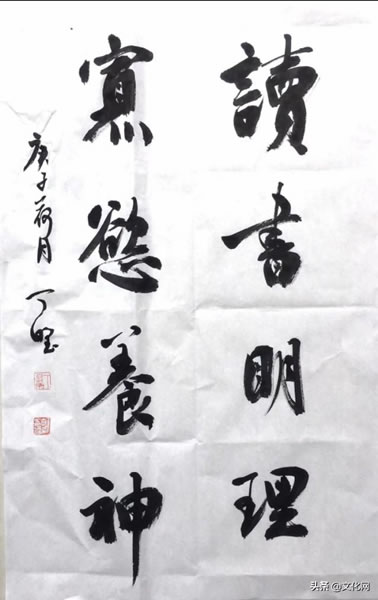 讀書明理
寡慾養神
庚子荷月
头条 @文化网